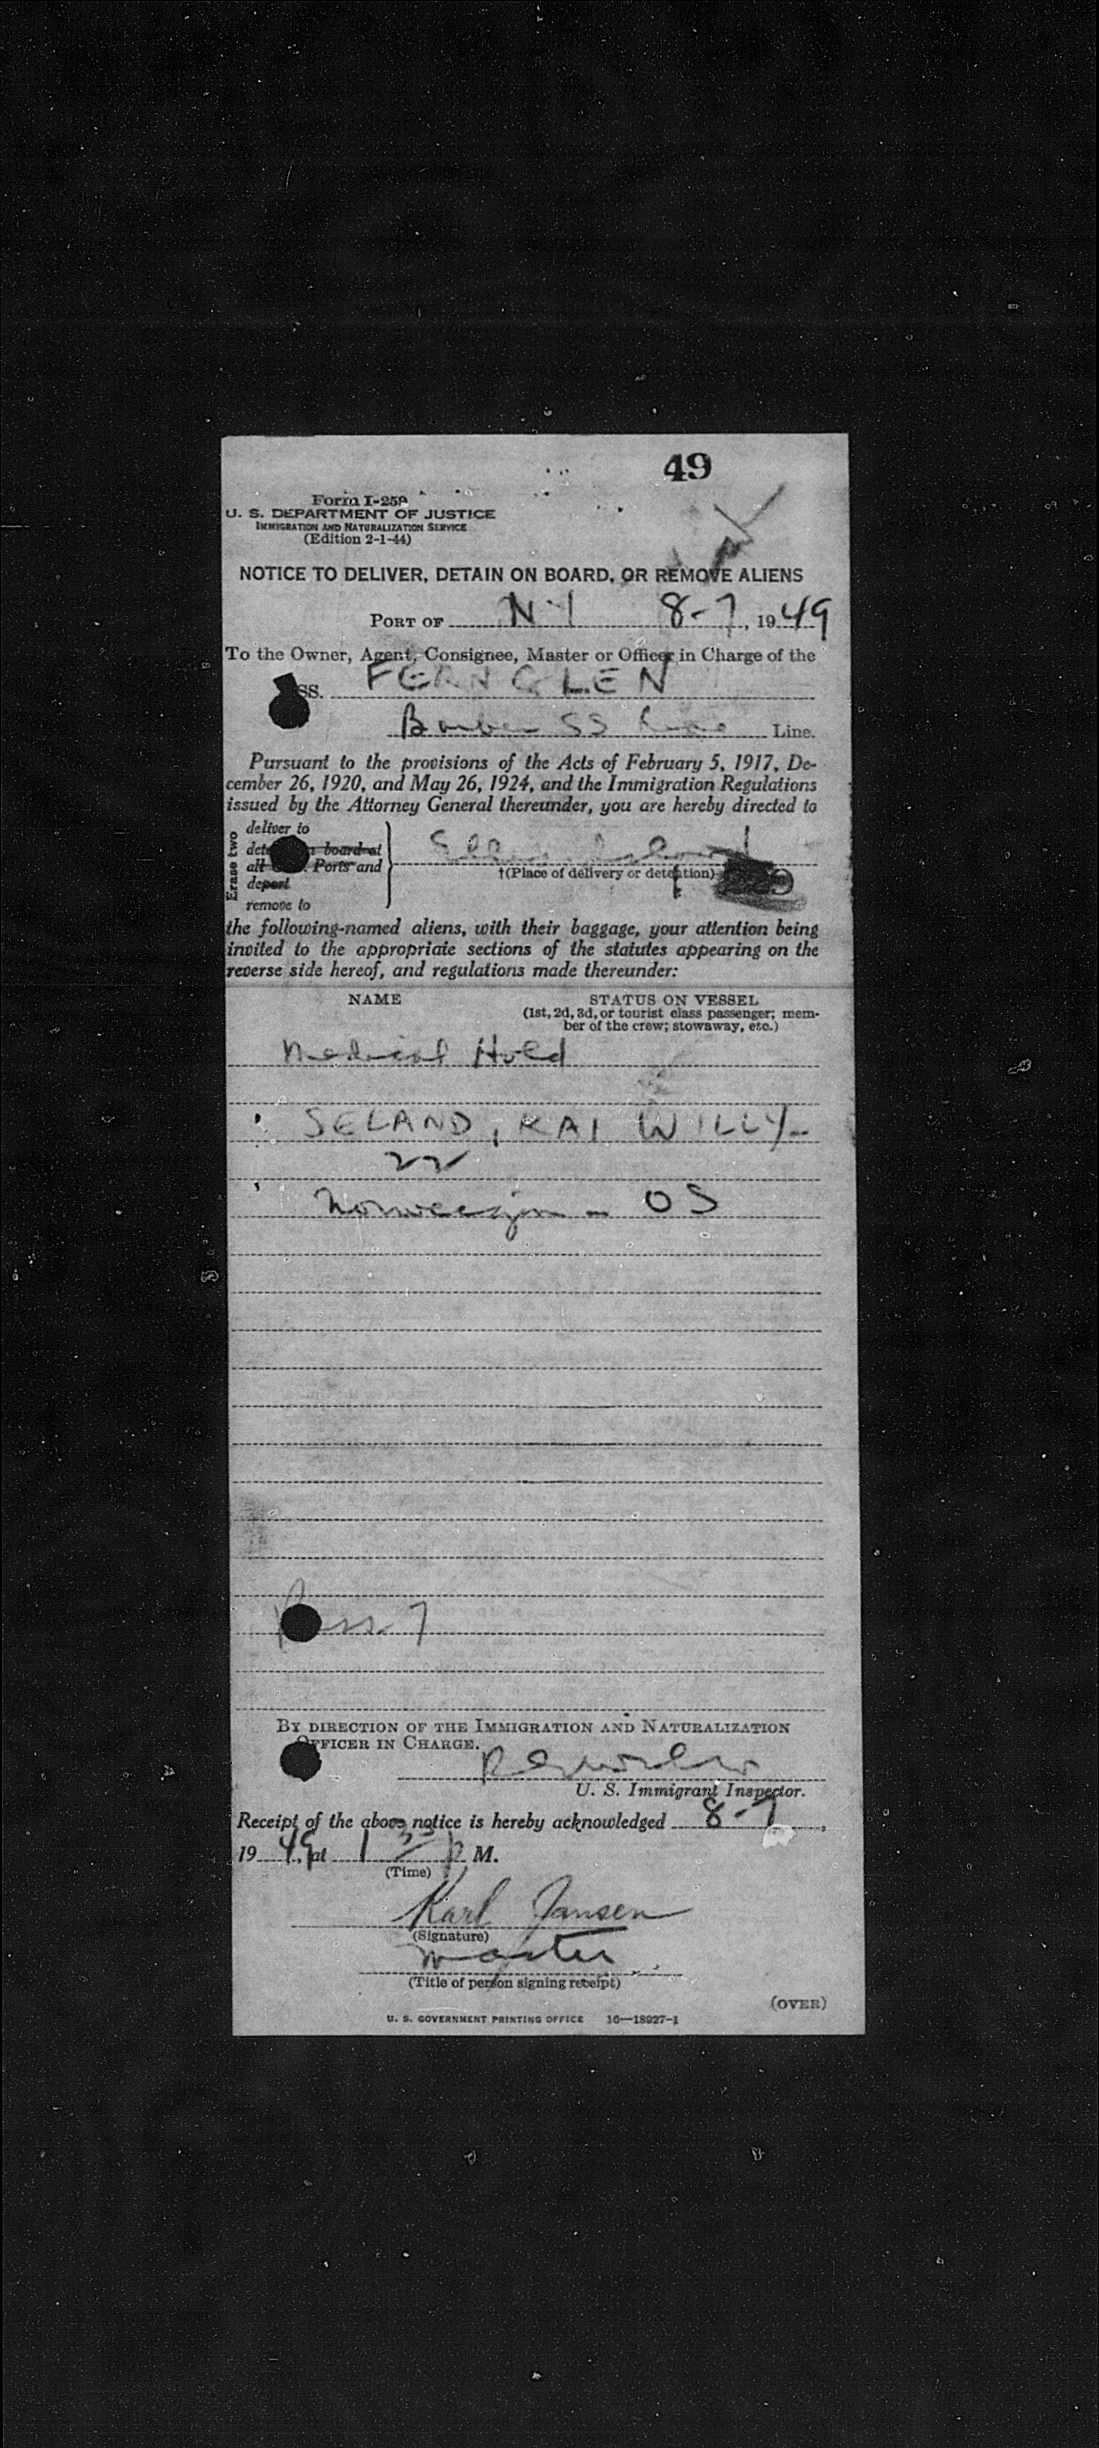 49
Form I-259
U. S. DEPARTMENT OF JUSTICE
IMMIGRATION AND NATURALIZATION SERVICE
(Edition 2-1-44)
NOTICE TO DELIVER, DETAIN ON BOARD, OR REMOVE ALIENS
PORT OF N Y 8-7, 1949
To the Owner, Agent, Consignee, Master or Officer in Charge of the
SS. FERNGLEN
Barber SS Line Line.
Pursuant to the provisions of the Acts of February 5, 1917, De-
cember 26, 1920, and May 26, 1924, and the Immigration Regulations
issued by the Attorney General thereunder, you are hereby directed to
Erase two
deliver to
board at
all Ports and
deport
remove to
Ellis Island
†(Place of delivery or detention)
the following-named aliens, with their baggage, your attention being
invited to the appropriate sections of the statutes appearing on the
reverse side hereof, and regulations made thereunder:
NAME STATUS ON VESSEL
(1st, 2d, 3d, or tourist class passenger; mem-
ber of the crew; stowaway, etc.)
Medical Hold
SELAND, KAI WILLY-
22
Norwegian - OS
7
BY DIRECTION OF THE IMMIGRATION AND NATURALIZATION
OFFICER IN CHARGE.
U. S. Immigrant Inspector.
Receipt of the above notice is hereby acknowledged 8-7,
1949, at 1 30 p M.
(Time)
Karl Jansen
(Signature)
Master
(Title of person signing receipt)
(OVER)
U. S. GOVERNMENT PRINTING OFFICE 16—18927-1